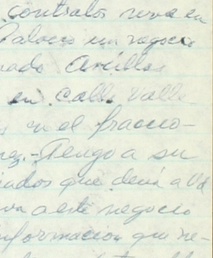 controlos nova en
Palacio un negocio
nado Anillos
en calle Valle
s en el fraccio-
ez.- Tengo a su
iados que decia a Vd
va a este negocio
nformacion que ne-